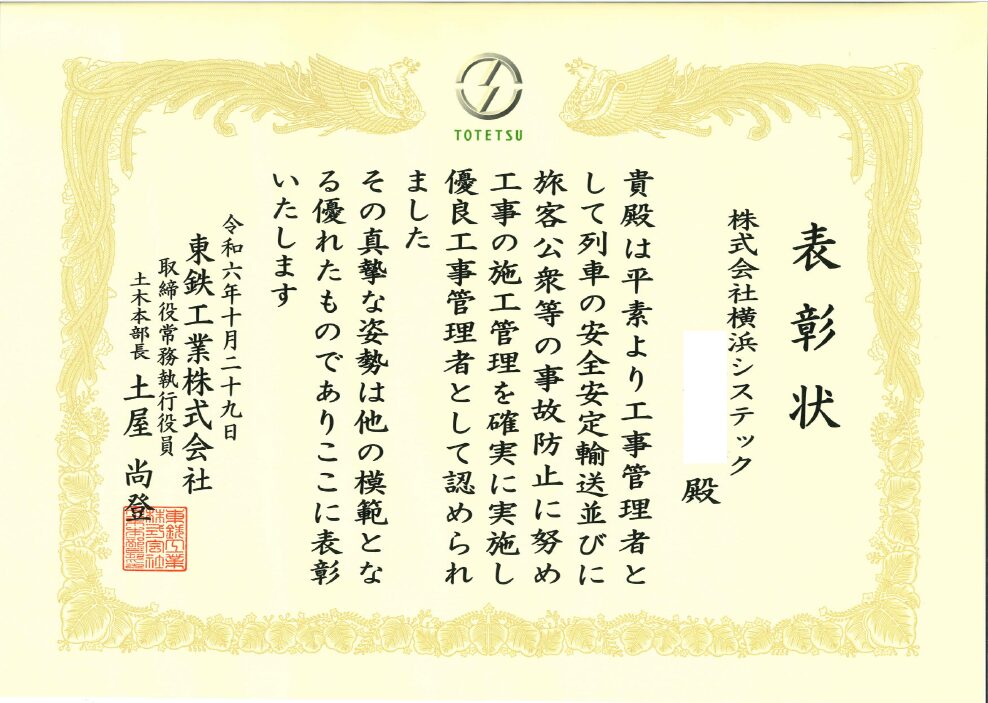 TOTETSU
表彰状
株式会社横浜システック
殿
貴殿は平素より工事管理者と
して列車の安全安定輸送並びに
旅客公衆等の事故防止に努め
工事の施工管理を確実に実施し
優良工事管理者として認められ
ました
その真摯な姿勢は他の模範とな
る優れたものでありここに表彰
いたします
令和六年十月二十九日
東鉄工業株式会社
取締役常務執行役員
土木本部長 土屋 尚登